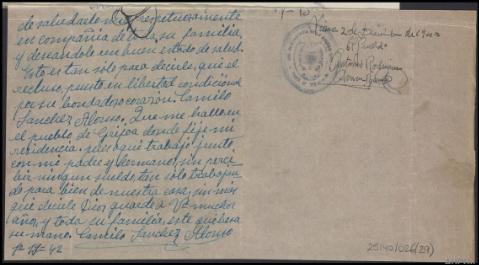 de saludarlo muy respetuosamente
en compañía de su familia,
y deseandole un buen estado de salud.
Esto es tan solo para decirle, que el
recluso, puesto en libertad condicional
por su bondadoso corazón. Camilo
Sanchez Alonso. Que me hallo en
el pueblo de donde fije mi
residencia. pues aqui trabajo junto
con mi padre y hermano, sin perci
bir ningun sueldo, tan solo trabajan
do para bien de nuestra casa, sin mas
que decirle Dios guarde a Vd muchos
años, y toda su familia, este que besa
su mano. Camilo Sanchez Alonso
42
2 de Diciembre de
El
Antonio
25140/026(29)